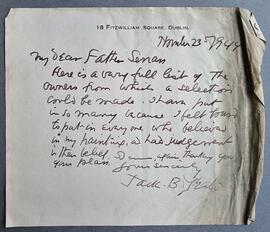 18 FITZWILLIAM SQUARE. DUBLIN.
November 23rd 1949
My dear Father Senan
Here is a very full list of the
owners from which a selection
could be made. I have put
in so many because I felt bound
to put in everyone who believed
in my painting, or had judgement
in their belief. again thanking you
your plan.
Yours sincerely
Jack B Yeats